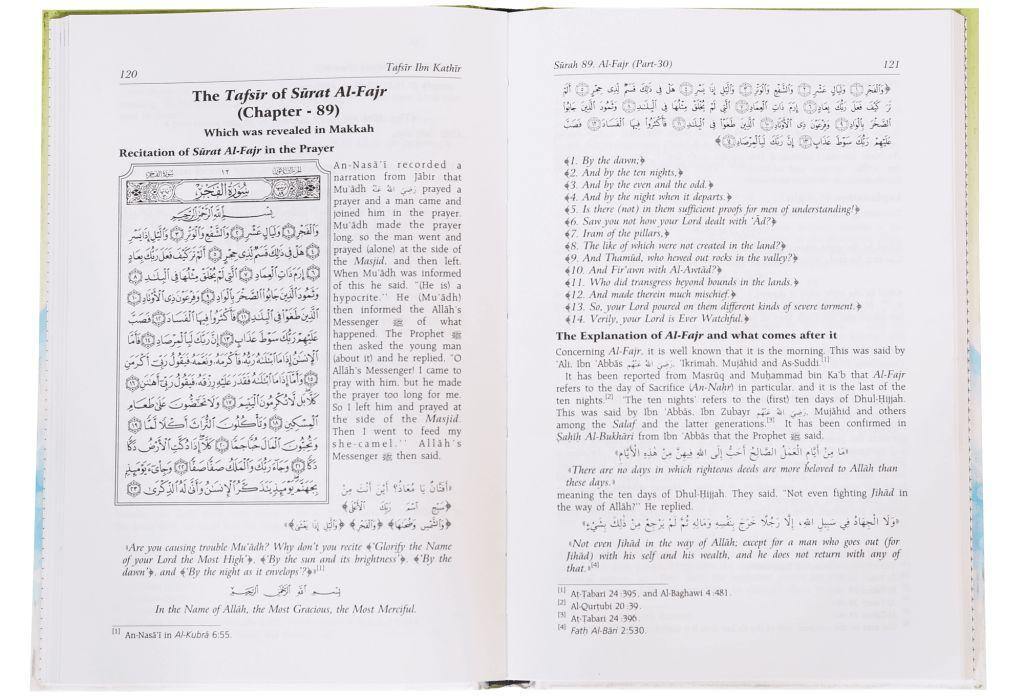 120
Tafsīr Ibn Kathīr
The Tafsīr of Sūrat Al-Fajr
(Chapter - 89)
Which was revealed in Makkah
Recitation of Sūrat Al-Fajr in the Prayer
سُورَةُ الْفَجْرِ
بِسْمِ اللَّهِ الرَّحْمَٰنِ الرَّحِيمِ
وَالْفَجْرِ ١ وَلَيَالٍ عَشْرٍ ٢ وَالشَّفْعِ وَالْوَتْرِ ٣ وَاللَّيْلِ إِذَا يَسْرِ
٤ هَلْ فِي ذَٰلِكَ قَسَمٌ لِّذِي حِجْرٍ ٥ أَلَمْ تَرَ كَيْفَ فَعَلَ رَبُّكَ بِعَادٍ
٦ إِرَمَ ذَاتِ الْعِمَادِ ٧ الَّتِي لَمْ يُخْلَقْ مِثْلُهَا فِي الْبِلَادِ ٨
وَثَمُودَ الَّذِينَ جَابُوا الصَّخْرَ بِالْوَادِ ٩ وَفِرْعَوْنَ ذِي الْأَوْتَادِ ١٠
الَّذِينَ طَغَوْا فِي الْبِلَادِ ١١ فَأَكْثَرُوا فِيهَا الْفَسَادَ ١٢ فَصَبَّ
عَلَيْهِمْ رَبُّكَ سَوْطَ عَذَابٍ ١٣ إِنَّ رَبَّكَ لَبِالْمِرْصَادِ ١٤ فَأَمَّا
الْإِنسَانُ إِذَا مَا ابْتَلَاهُ رَبُّهُ فَأَكْرَمَهُ وَنَعَّمَهُ فَيَقُولُ رَبِّي أَكْرَمَنِ
١٥ وَأَمَّا إِذَا مَا ابْتَلَاهُ فَقَدَرَ عَلَيْهِ رِزْقَهُ فَيَقُولُ رَبِّي أَهَانَنِ ١٦
كَلَّا بَل لَّا تُكْرِمُونَ الْيَتِيمَ ١٧ وَلَا تَحَاضُّونَ عَلَىٰ طَعَامِ
الْمِسْكِينِ ١٨ وَتَأْكُلُونَ التُّرَاثَ أَكْلًا لَّمًّا ١٩
وَتُحِبُّونَ الْمَالَ حُبًّا جَمًّا ٢٠ كَلَّا إِذَا دُكَّتِ الْأَرْضُ دَكًّا
دَكًّا ٢١ وَجَاءَ رَبُّكَ وَالْمَلَكُ صَفًّا صَفًّا ٢٢ وَجِيءَ يَوْمَئِذٍ
بِجَهَنَّمَ يَوْمَئِذٍ يَتَذَكَّرُ الْإِنسَانُ وَأَنَّىٰ لَهُ الذِّكْرَىٰ ٢٣
An-Nasā'ī recorded a
narration from Jābir that
Mu'ādh رضي الله عنه prayed a
prayer and a man came and
joined him in the prayer.
Mu'ādh made the prayer
long, so the man went and
prayed (alone) at the side of
the Masjid, and then left.
When Mu'ādh was informed
of this he said, "(He is) a
hypocrite." He (Mu'ādh)
then informed the Allāh's
Messenger ﷺ of what
happened. The Prophet ﷺ
then asked the young man
(about it) and he replied, "O
Allāh's Messenger! I came to
pray with him, but he made
the prayer too long for me.
So I left him and prayed at
the side of the Masjid.
Then I went to feed my
she-camel." Allāh's
Messenger ﷺ then said,
«أَفَتَّانٌ يَا مُعَاذُ؟ أَيْنَ أَنْتَ مِنْ
﴿سَبِّحِ اسْمَ رَبِّكَ الْأَعْلَى﴾
﴿وَالشَّمْسِ وَضُحَاهَا﴾ ﴿وَالْفَجْرِ﴾ ﴿وَاللَّيْلِ إِذَا يَغْشَى﴾»
«Are you causing trouble Mu'ādh? Why don't you recite ﴾'Glorify the Name
of your Lord the Most High'﴿, ﴾'By the sun and its brightness'﴿, ﴾'By the
dawn'﴿, and ﴾'By the night as it envelops'?﴿»[1]
بِسْمِ اللَّهِ الرَّحْمَٰنِ الرَّحِيمِ
In the Name of Allāh, the Most Gracious, the Most Merciful.
[1] An-Nasā'ī in Al-Kubrā 6:55.
Sūrah 89. Al-Fajr (Part-30)
121
﴿وَالْفَجْرِ ١ وَلَيَالٍ عَشْرٍ ٢ وَالشَّفْعِ وَالْوَتْرِ ٣ وَاللَّيْلِ إِذَا يَسْرِ ٤ هَلْ فِي ذَٰلِكَ قَسَمٌ لِّذِي حِجْرٍ ٥ أَلَمْ
تَرَ كَيْفَ فَعَلَ رَبُّكَ بِعَادٍ ٦ إِرَمَ ذَاتِ الْعِمَادِ ٧ الَّتِي لَمْ يُخْلَقْ مِثْلُهَا فِي الْبِلَادِ ٨ وَثَمُودَ الَّذِينَ جَابُوا
الصَّخْرَ بِالْوَادِ ٩ وَفِرْعَوْنَ ذِي الْأَوْتَادِ ١٠ الَّذِينَ طَغَوْا فِي الْبِلَادِ ١١ فَأَكْثَرُوا فِيهَا الْفَسَادَ ١٢ فَصَبَّ
عَلَيْهِمْ رَبُّكَ سَوْطَ عَذَابٍ ١٣ إِنَّ رَبَّكَ لَبِالْمِرْصَادِ ١٤﴾
﴾1. By the dawn;﴿
﴾2. And by the ten nights,﴿
﴾3. And by the even and the odd.﴿
﴾4. And by the night when it departs.﴿
﴾5. Is there (not) in them sufficient proofs for men of understanding!﴿
﴾6. Saw you not how your Lord dealt with 'Ād?﴿
﴾7. Iram of the pillars,﴿
﴾8. The like of which were not created in the land?﴿
﴾9. And Thamūd, who hewed out rocks in the valley?﴿
﴾10. And Fir'awn with Al-Awtād?﴿
﴾11. Who did transgress beyond bounds in the lands.﴿
﴾12. And made therein much mischief.﴿
﴾13. So, your Lord poured on them different kinds of severe torment.﴿
﴾14. Verily, your Lord is Ever Watchful.﴿
The Explanation of Al-Fajr and what comes after it
Concerning Al-Fajr, it is well known that it is the morning. This was said by
'Alī, Ibn 'Abbās رضي الله عنهم, 'Ikrimah, Mujāhid and As-Suddi.[1]
It has been reported from Masrūq and Muḥammad bin Ka'b that Al-Fajr
refers to the day of Sacrifice (An-Nahr) in particular, and it is the last of the
ten nights.[2] 'The ten nights' refers to the (first) ten days of Dhul-Ḥijjah.
This was said by Ibn 'Abbās, Ibn Zubayr رضي الله عنهم, Mujāhid and others
among the Salaf and the latter generations.[3] It has been confirmed in
Ṣaḥīḥ Al-Bukhāri from Ibn 'Abbās that the Prophet ﷺ said,
«مَا مِنْ أَيَّامٍ الْعَمَلُ الصَّالِحُ أَحَبُّ إِلَى اللهِ فِيهِنَّ مِنْ هَذِهِ الْأَيَّامِ»
«There are no days in which righteous deeds are more beloved to Allāh than
these days.»
meaning the ten days of Dhul-Ḥijjah. They said, "Not even fighting Jihād in
the way of Allāh?" He replied,
«وَلَا الْجِهَادُ فِي سَبِيلِ اللهِ، إِلَّا رَجُلًا خَرَجَ بِنَفْسِهِ وَمَالِهِ ثُمَّ لَمْ يَرْجِعْ مِنْ ذَلِكَ بِشَيْءٍ»
«Not even Jihād in the way of Allāh; except for a man who goes out (for
Jihād) with his self and his wealth, and he does not return with any of
that.»[4]
[1] Aṭ-Ṭabari 24:395, and Al-Baghawi 4:481.
[2] Al-Qurṭubi 20:39.
[3] Aṭ-Ṭabari 24:396.
[4] Fatḥ Al-Bāri 2:530.